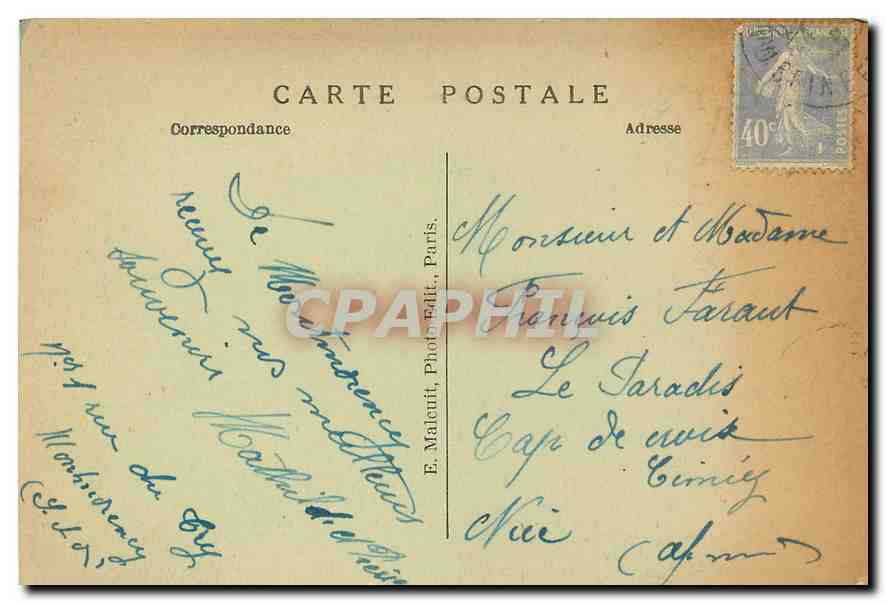 CARTE POSTALE
Correspondance
Adresse
40c
POSTES
De Montmorency
recevez nos meilleurs
souvenirs
Mathilde et
rue du
Montmorency
(S. & O.)
E. Malcuit, Photo Edit., Paris.
Monsieur et Madame
François Faraut
Le Paradis
Cap de croix
Cimiez
Nice
CPAPHIL